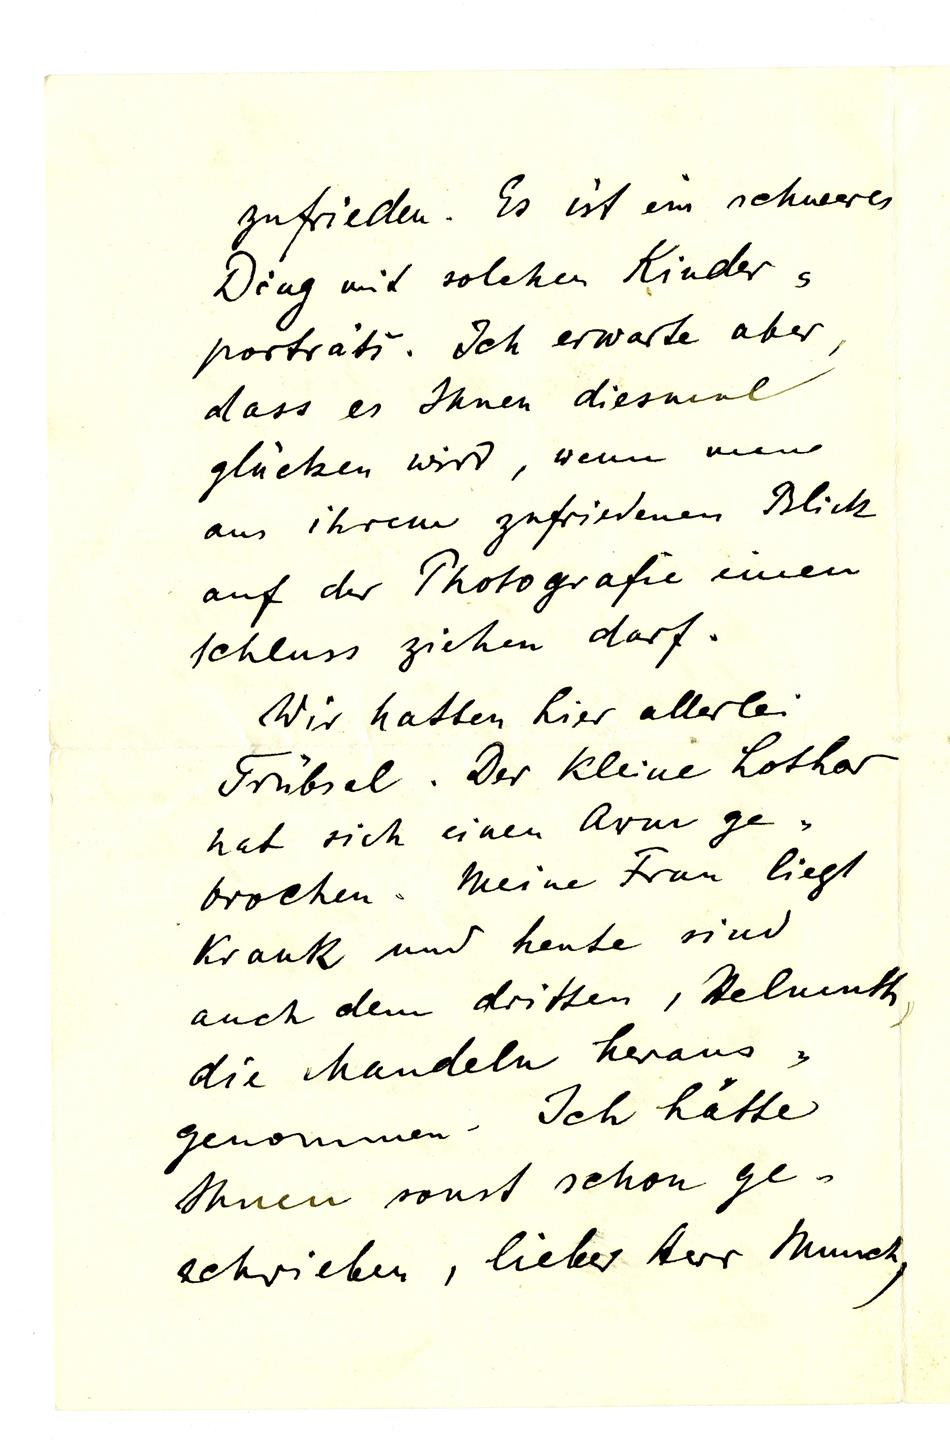 zufrieden. Es ist ein schweres
Ding mit solchen Kinder-
porträts. Ich erwarte aber,
dass es Ihnen diesmal
glücken wird, wenn man
aus ihrem zufriedenen Blick
auf der Photografie einen
Schluss ziehen darf.
Wir hatten hier allerlei
Trübsal. Der kleine Lothar
hat sich einen Arm ge-
brochen. Meine Frau liegt
krank und heute sind
auch dem dritten, Helmuth,
die Mandeln heraus-
genommen. Ich hätte
Ihnen sonst schon ge-
schrieben, lieber Herr Munch,